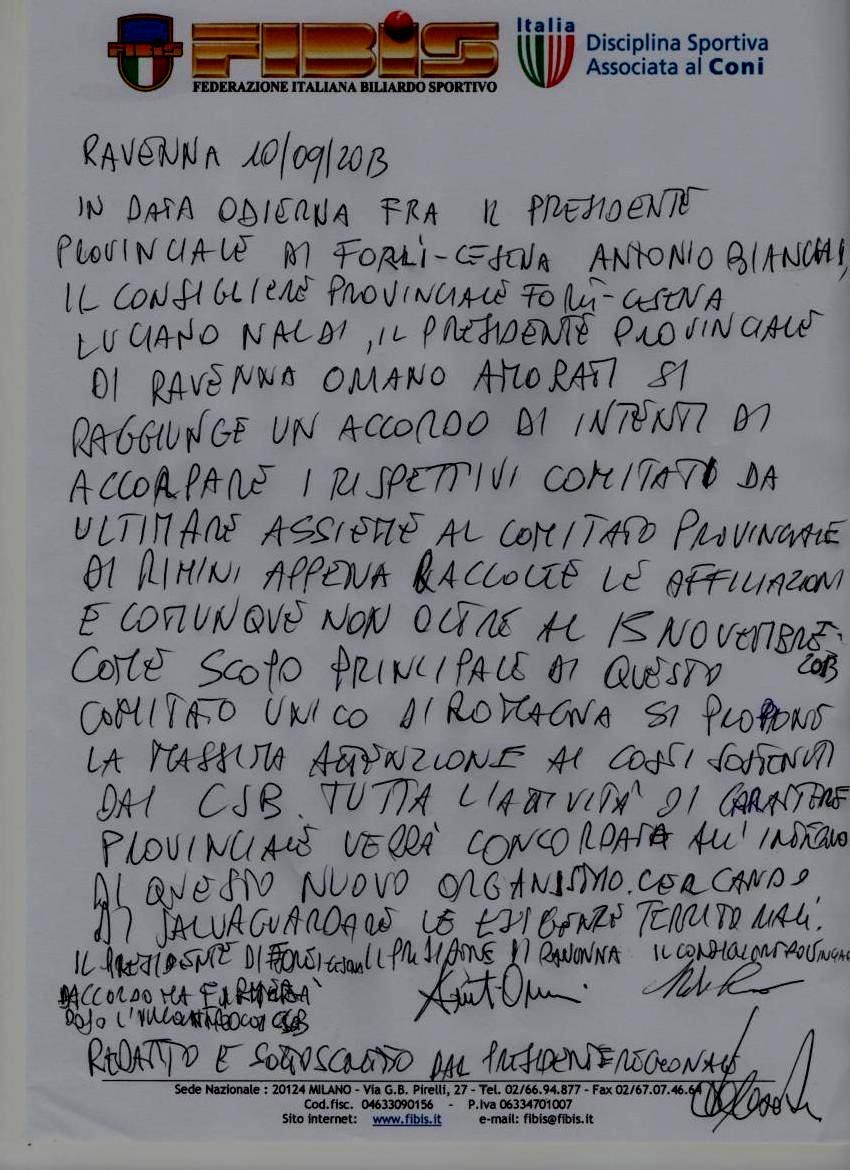 FIBIS
FIBIS
FEDERAZIONE ITALIANA BILIARDO SPORTIVO
Italia
Disciplina Sportiva
Associata al Coni
RAVENNA 10/09/2013
IN DATA ODIERNA FRA IL PRESIDENTE
PROVINCIALE DI FORLÌ-CESENA ANTONIO BIANCHI,
IL CONSIGLIERE PROVINCIALE FORLÌ-CESENA
LUCIANO NALDI, IL PRESIDENTE PROVINCIALE
DI RAVENNA OMANO AMORATI SI
RAGGIUNGE UN ACCORDO DI INTENTI DI
ACCORPARE I RISPETTIVI COMITATI DA
ULTIMARE ASSIEME AL COMITATO PROVINCIALE
DI RIMINI APPENA RACCOLTE LE AFFILIAZIONI
E COMUNQUE NON OLTRE AL 15 NOVEMBRE
2013
COME SCOPO PRINCIPALE DI QUESTO
COMITATO UNICO DI ROMAGNA SI PROPONE
LA MASSIMA ATTENZIONE AI COSTI SOSTENUTI
DAI CSB. TUTTA L'ATTIVITÀ DI CARATTERE
PROVINCIALE VERRÀ CONCORDATA ALL'INTERNO
DI QUESTO NUOVO ORGANISMO. CERCANDO
DI SALVAGUARDARE LE ESIGENZE TERRITORIALI.
IL PRESIDENTE DI FORLÌ CESENA IL PRESIDENTE DI RAVENNA IL CONSIGLIERE PROVINCIALE
DACCORDO MA FIRMERÀ
DOPO L'INCONTRO COI CSB
REDATTO E SOTTOSCRITTO DAL PRESIDENTE REGIONALE
Sede Nazionale : 20124 MILANO - Via G.B. Pirelli, 27 - Tel. 02/66.94.877 - Fax 02/67.07.46.64
Cod.fisc. 04633090156 - P.Iva 06334701007
Sito internet: www.fibis.it e-mail: fibis@fibis.it